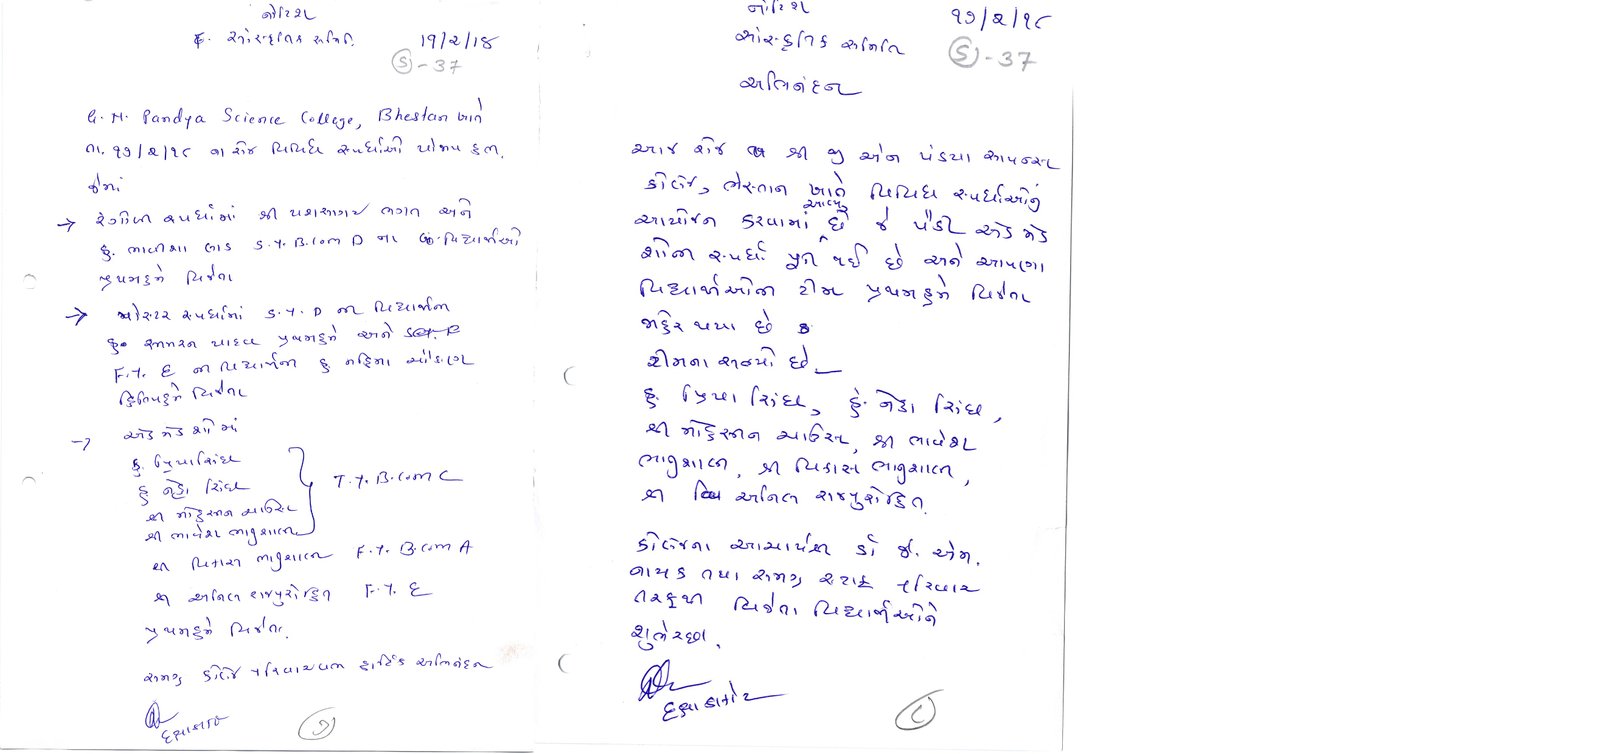 નોટિશ
સાંસ્કૃતિક સમિતિ
19/2/18
S-37
G. M. Pandya Science College, Bhestan ખાતે
તા. ૧૭/૨/૧૮ ના રોજ વિવિધ સ્પર્ધાઓ યોજાય હતી.
જેમાં
→ રંગોળી સ્પર્ધામાં શ્રી ભગત અને
કુ. લાડ S.Y. B.com D ના વિદ્યાર્થીઓ
પ્રથમક્રમે વિજેતા
→ પોસ્ટર સ્પર્ધામાં S.Y. D ના વિદ્યાર્થીની
કુ. યાદવ પ્રથમક્રમે અને
F.Y. E ના વિદ્યાર્થીની કુ.
દ્વિતિયક્રમે વિજેતા
→ એડ મેડ શો માં
કુ. પ્રિયા સિંઘ
કુ નેહા સિંઘ
શ્રી
શ્રી ભાવેશ ભાનુશાલી
T.Y. B.com C
શ્રી વિકાસ ભાનુશાલી F.Y. B.com A
શ્રી અનિલ રાજપુરોહિત F.Y. E
પ્રથમક્રમે વિજેતા.
સમગ્ર કોલેજ પરિવાર હાર્દિક અભિનંદન
નોટિશ
૧૭/૨/૧૮
સાંસ્કૃતિક સમિતિ
S-37
અભિનંદન
આજ રોજ શ્રી જી એમ પંડયા સાયન્સ
કોલેજ, ભેસ્તાન ખાતે વિવિધ સ્પર્ધાઓનું
આયોજન કરવામાં આવ્યું છે જે પૈકી એડ મેડ
શોની સ્પર્ધા પૂર્ણ થઈ છે અને આપણા
વિદ્યાર્થીઓની ટીમ પ્રથમક્રમે વિજેતા
જાહેર થયા છે
ટીમના સભ્યો છે_
કુ. પ્રિયા સિંઘ, કુ. નેહા સિંઘ,
શ્રી શ્રી ભાવેશ
ભાનુશાલી, શ્રી વિકાસ ભાનુશાલી,
શ્રી અનિલ રાજપુરોહિત.
કોલેજના આચાર્યશ્રી ડૉ જે. એમ.
નાયક તથા સમગ્ર સ્ટાફ પરિવાર
તરફથી વિજેતા વિદ્યાર્થીઓને
શુભેચ્છા.